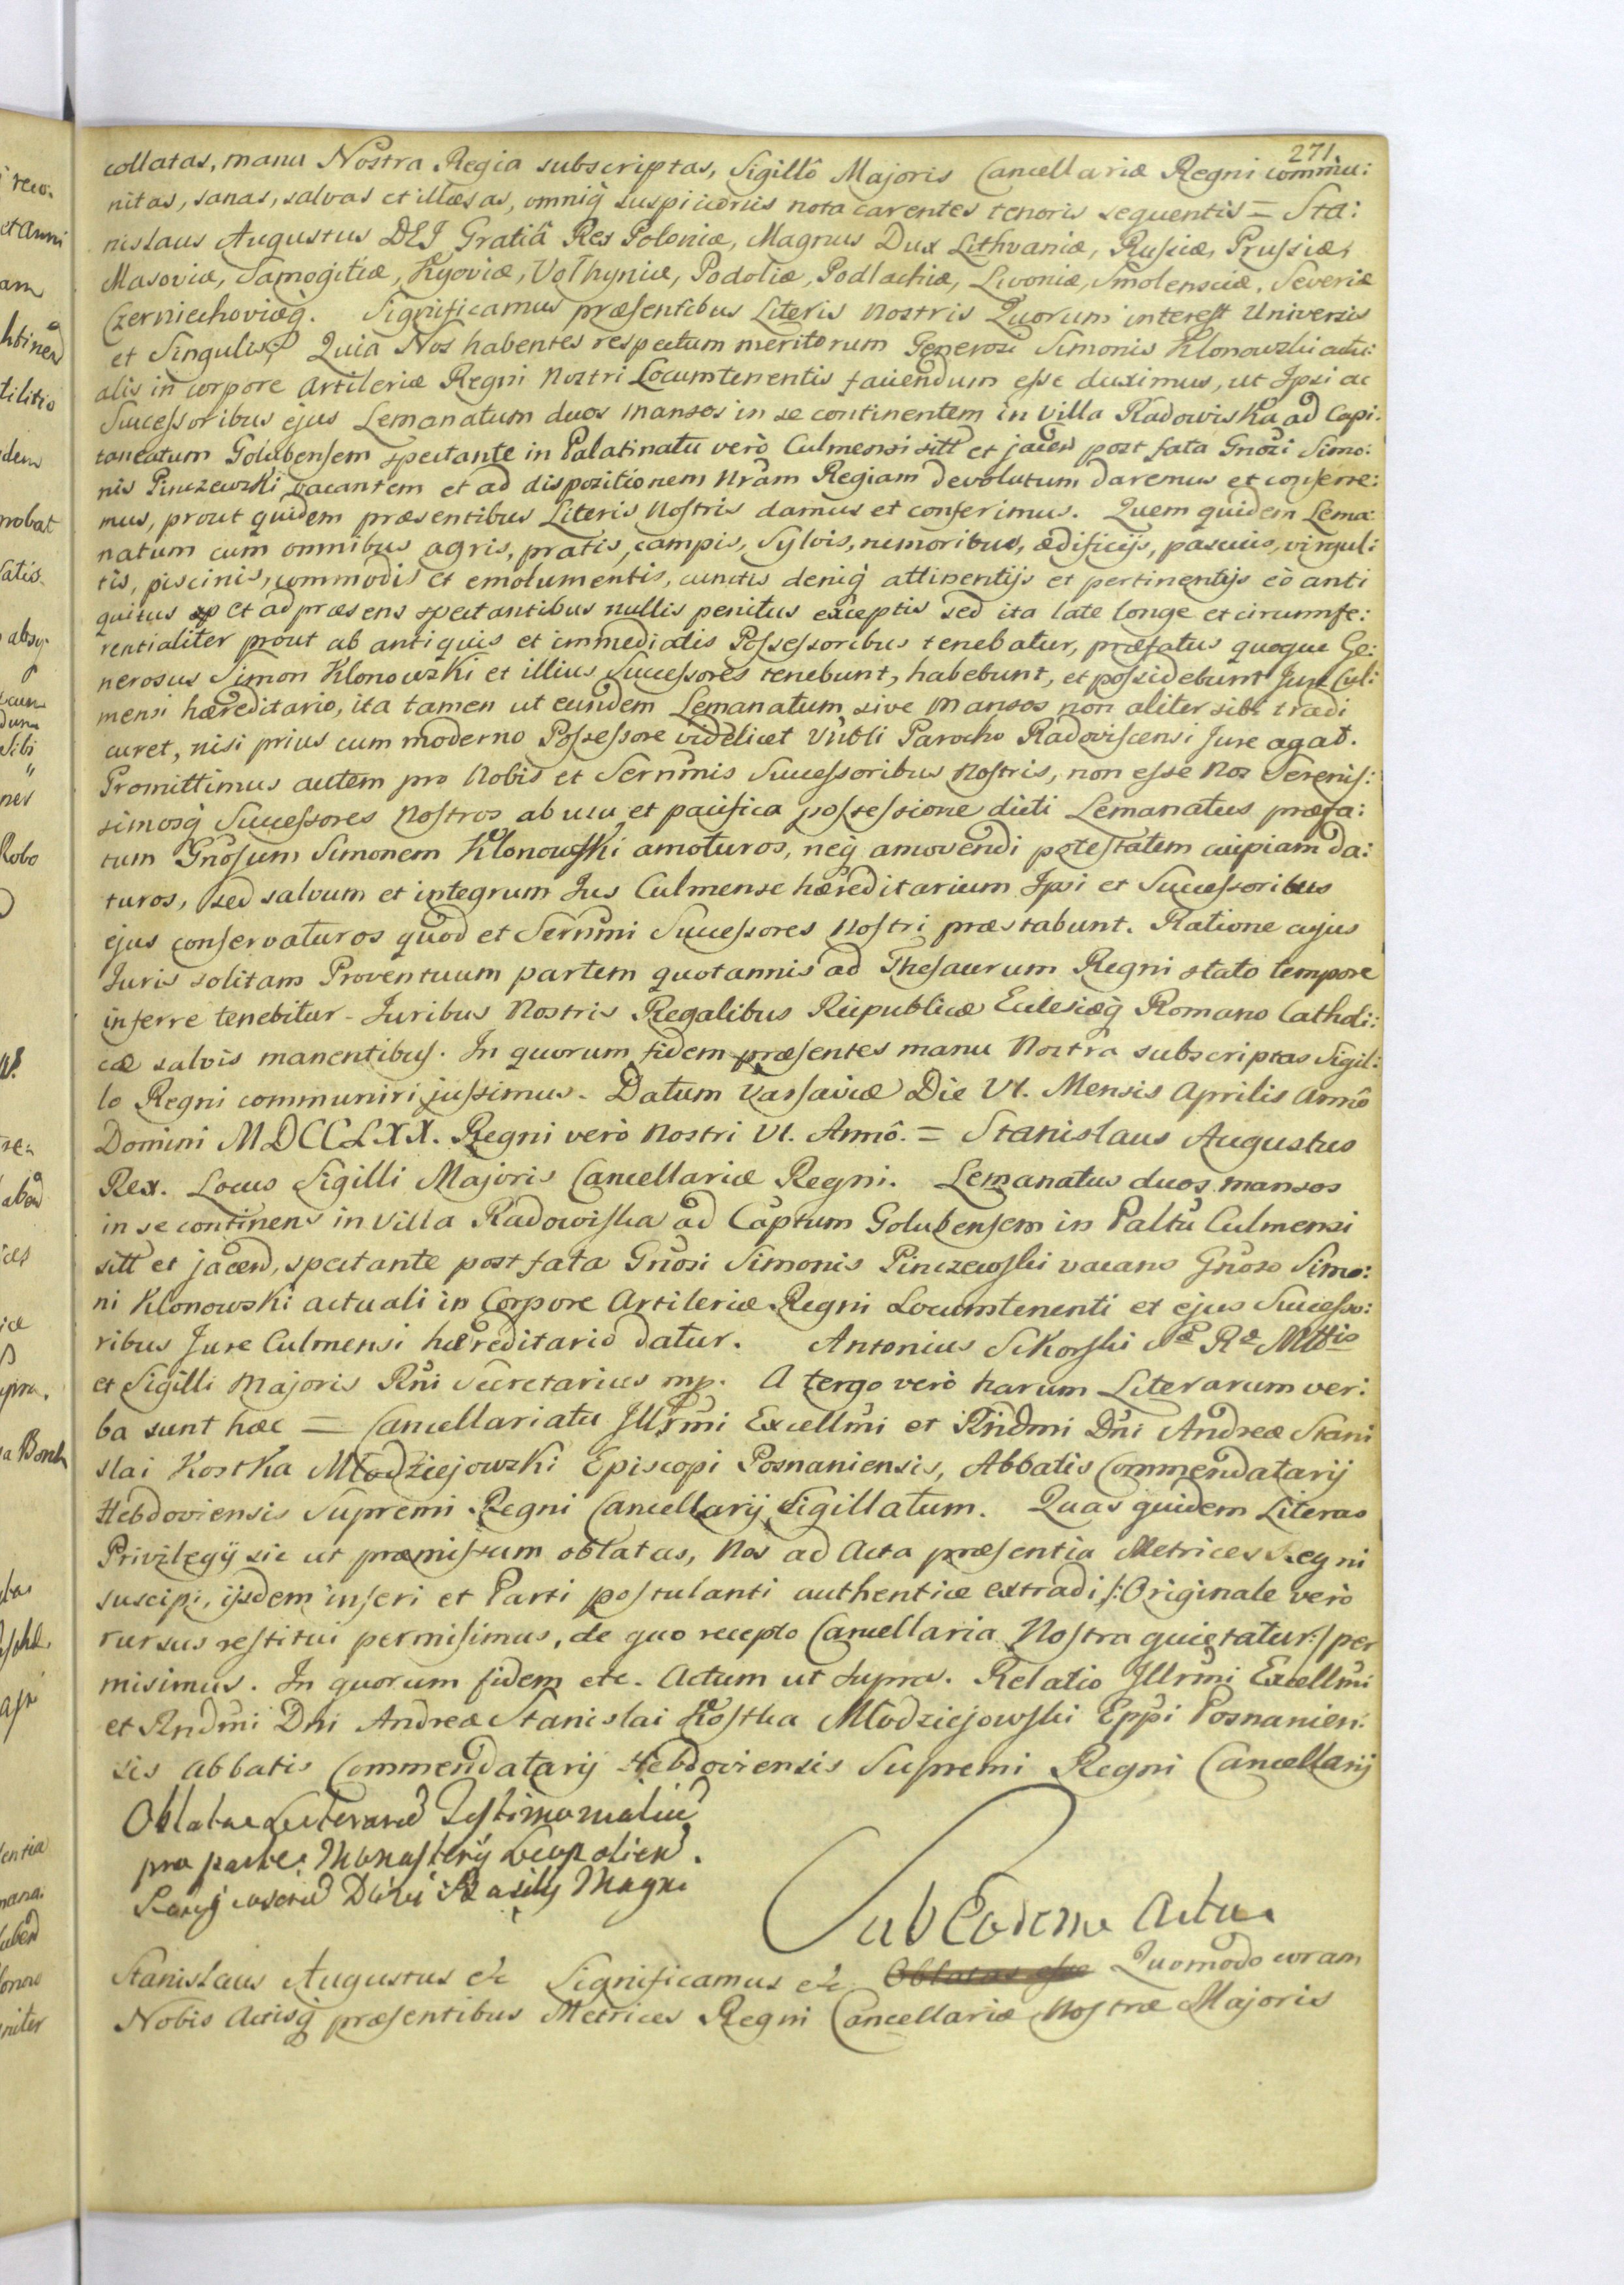 271.
collatas, manu Nostra Regia subscriptas, Sigillô Majoris Cancellariæ Regni commu:
nitas, sanas, salvas et illæsas, omniq suspicionis nota carentes tenoris sequentis = Sta:
nislaus Augustus DEI Gratiâ Rex Poloniæ, Magnus Dux Lithvaniæ, Russiæ, Prussiæ,
Masoviæ, Samogitiæ, Kyoviæ, Volhyniæ, Podoliæ, Podlachiæ, Livoniæ, Smolensciæ, Severiæ
Czerniechoviæq. Significamus præsentibus Literis Nostris Quorum interest Universis
et Singulis Quia Nos habentes respectum meritorum Generosi Simonis Klonowski actu:
alis in corpore Artileriæ Regni Nostri Locumtenentis faciendum esse duximus, ut Ipsi ac
Successoribus ejus Lemanatum duos mansos in se continentem in Villa Radowiska ad Capi:
taneatum Golubensem spectante in Palatinatu verò Culmensi sitt et jacen post fata Gnosi Simo:
nis Pinczewski vacantem et ad dispozitionem Nram Regiam devolutum daremus et conferre:
mus, prout quidem præsentibus Literis Nostris damus et conferimus. Quem quidem Lema:
natum cum omnibus agris, pratis, campis, Sylvis, nemoribus, ædificijs, pascuis, virgul:
tis, piscinis, commodis et emolumentis, cunctis deniq attinentijs et pertinentijs eò anti
quitus et ad præsens spectantibus nullis penitus exceptis sed ita late longe et circumfe:
rentialiter prout ab antiquis et immediatis Possessoribus tenebatur, præfatus quoque Ge:
nerosus Simon Klonowski et illius Successores tenebunt, habebunt, et possidebunt Jure Cul:
mensi hæreditario, ita tamen ut eundem Lemanatum sive Mansos non aliter sibi tradi
curet, nisi prius cum moderno Possessore videlicet Vnbli Parocho Radoviscensi Jure agat.
Promittimus autem pro Nobis et Sernmis Successoribus Nostris, non esse Nos Serenis:
simosq Successores Nostros ab usu et pacifica possessione dicti Lemanatus præfa:
tum Gnosum Simonem Klonowski amoturos, neq amovendi potestatem cuipiam da:
turos, sed salvum et integrum Jus Culmense hæreditarium Ipsi et Successoribus
ejus conservaturos quod et Sernmi Successores Nostri præstabunt. Ratione cujus
Juris solitam Proventuum partem quotannis ad Thesaurum Regni stato tempore
inferre tenebitur - Juribus Nostris Regalibus Reipublicæ Eclesiæq Romano Catholi:
cæ salvis manentibus. In quorum fidem præsentes manu Nostra subscriptas Sigil:
lo Regni communiri jussimus. Datum Varsaviæ Die VI. Mensis Aprilis Annô
Domini MDCCLXX. Regni verò Nostri VI. Annô. = Stanislaus Augustus
Rex. Locus Sigilli Majoris Cancellariæ Regni. Lemanatus duos mansos
in se continens in Villa Radowiska ad Captum Golubensem in Paltu Culmensi
sitt et jacen, spectante post fata Gnosi Simonis Pinczewski vacans Gnoso Simo:
ni Klonowski actuali in Corpore Artileriæ Regni Locumtenenti et ejus Successo:
ribus Jure Culmensi hæreditario datur. Antonius Sikorski Sæ Ræ Mttis
et Sigilli Majoris Rni Secretarius mp. A tergo verò harum Literarum ver:
ba sunt hæc = Cancellariatu Jllrmi Excellmi et Rndmi Dni Andreæ Stani
slai Kostka Młodziejowski Episcopi Posnaniensis, Abbatis Commendatarij
Hebdoviensis Supremi Regni Cancellarij Sigillatum. Quas quidem Literas
Privilegij sic ut præmissum oblatas, Nos ad Acta præsentia Metrices Regni
suscipi, ijsdem inseri et Parti postulanti authentice extradi /: Originale verò
rursus restitui permisimus, de quo recepto Cancellaria Nostra quietatur :/ per
misimus. In quorum fidem etc. Actum ut supra. Relatio Jllrmi Excellmi
et Rndmi Dni Andreæ Stanislai Kostka Młodziejowski Eppi Posnanien:
sis Abbatis Commendatarij Hebdoviensis Supremi Regni Cancellarij
Oblatae Literarū Testimonialiū
pro parte Monasterij Leopolien.
Divi Basilij Magni
Sub Eodem Actu
Stanislaus Augustus etc Significamus etc Oblatas esse Quomodo coram
Nobis Actisq præsentibus Metrices Regni Cancellariæ Nostræ Majoris